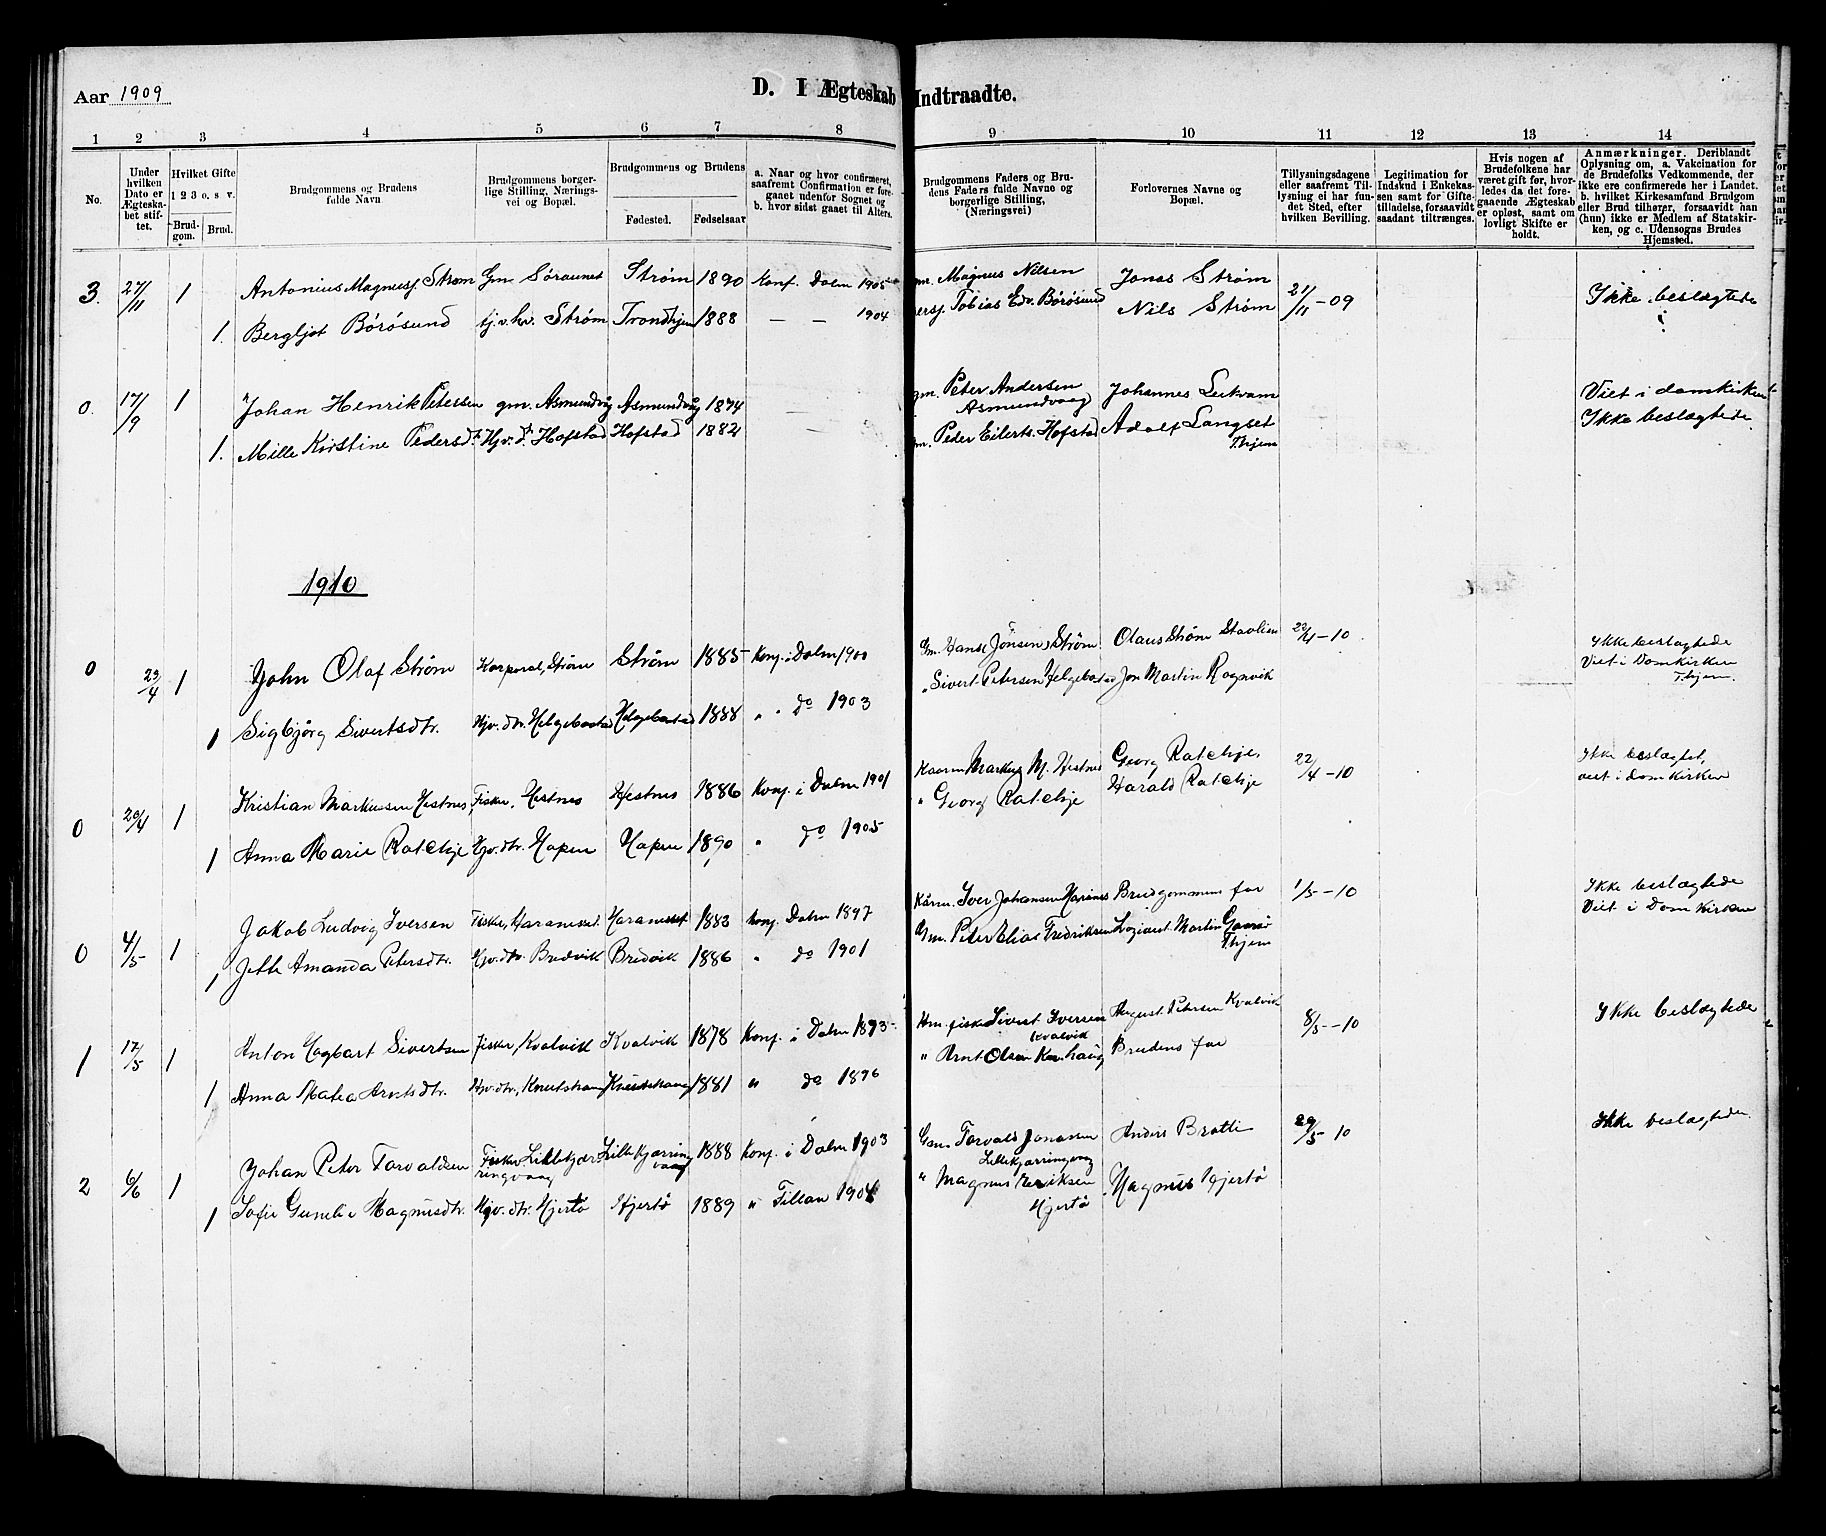 Aar 1909
D. I Ægteskab Indtraadte.
1 2 3 4 5 6 7 8 9 10 11 12 13 14
No.
Under hvilken Dato er Ægteskabet stiftet.
Hvilket Gifte
1 2 3 o. s v.
Brudgom. Brud.
Brudgommens og Brudens fulde Navn
Brudgommens borgerlige Stilling, Næringsvei og Bopæl.
Brudgommens og Brudens
Fødested. Fødselsaar
a. Naar og hvor confirmeret, saafremt Confirmation er foregaaet udenfor Sognet og b. hvor sidst gaaet til Alters.
Brudgommens Faders og Brudens Faders fulde Navne og borgerlige Stilling, (Næringsvei)
Forlovernes Navne og Bopæl.
Tillysningsdagene eller saafremt Tillysning ei har fundet Sted, efter hvilken Bevilling.
Legitimation for Indskud i Enkekassen samt for Giftetilladelse, forsaavidt saadant tiltrænges.
Hvis nogen af Brudefolkene har været gift før, hvorledes da det foregaaende Ægteskab er opløst, samt om lovligt Skifte er holdt.
Anmærkninger. Deriblandt Oplysning om, a. Vakcination for de Brudefolks Vedkommende, der ikke ere confirmerede her i Landet. b. hvilket Kirkesamfund Brudgom eller Brud tilhører, forsaavidt han (hun) ikke er Medlem af Statskirken, og c. Udensogns Brudes Hjemsted.
3. 27/11 1 Antonius Magnusj. Strøm Gm. Søraunet Strøm 1890 Konf. Dolm 1905 gm. Magnus Nilsen Jonas Strøm 21/11-09 Ikke beslægtede
1. Bergljot Børøsund tj. v. hv. Strøm Trondhjem 1888 — — 1904 Tobias Edv. Børøsund Nils Strøm
0. 17/9 1 Johan Henrik Petersen gm. Asmundvåg Asmundvåg 1874 — gm. Peter Andersen Asmundvaag Johannes Leikvam Viet i domkirken
1. Mille Kirstine Pedersdt. Hjv. dt. Hofstad Hofstad 1882 — gm. Peder Eilerts. Hofstad Adolf Langset T.hjem Ikke beslægtede
1910
0 23/4 1 John Olaf Strøm Korporal, Strøm Strøm 1885 Konf. i Dolm 1900 Gm. Hans Jønsen Strøm Olaus Strøm Stavlien 22/4-10 Ikke beslægtede
Viet i Domkirken T.hjem.
1 Sigbjørg Sivertsdtr. Hjv. dtr. Helgebostad Helgebostad 1888 " " do 1903 " Sivert Petersen Helgebostad Jon Martin Ragnvik
0 20/4 1 Kristian Markussen Hestnes Fisker, Hestnes Hestnes 1886 Konf. i Dolm 1901 Kaarm Markus M. Hestnes Georg Ratchje. 22/4-10 Ikke beslægtet,
viet i domkirken
1 Anna Marie Ratchje Hjv. dtr. Hapen Hapen 1890 " do 1905 " Georg Ratchje Harald Ratchje
0 4/5 1 Jakob Ludvig Iversen Fisker, Haramsset Haramsset 1883 Konf. Dolm 1897 Kårm. Iver Johansen Brudgommens far 1/5-10 Ikke beslægtede
Viet i Domkirken
1 Jette Amanda Petersdtr. Hjv. dtr. Bredvik Bredvik 1886 " do 1901 Gm. Peter Elias Fredriksen Martin T.hjem
1 17/5 1 Anton Hagbart Sivertsen Fisker, Kvalvik Kvalvik 1878 Konf. i Dolm 1893 Hm. fisker Sivert Iversen Kvalvik August Petersen Kvalvik 8/5-10 Ikke beslægtede
1 Anna Matea Arntsdtr. Hjv. dtr. Knutshaug Knutshaug 1881 " do 1896 " Arnt Olsen Kn.haug Brudens far
2 6/6 1 Johan Peter Torvaldsen Fisker Lillekjærringvaag Lillekjærringvaag 1888 Konf. i Dolm 1903 Gm. Torvald Jonassen Lillekjærringvaag Anders Bratti 29/5-10 Ikke beslægtede.
1 Sofie Gunelie Magnusdtr. Hjv. dtr. Hjertø Hjertø 1889 " Tillan 1904 " Magnus Henriksen Hjertø Magnus Hjertø